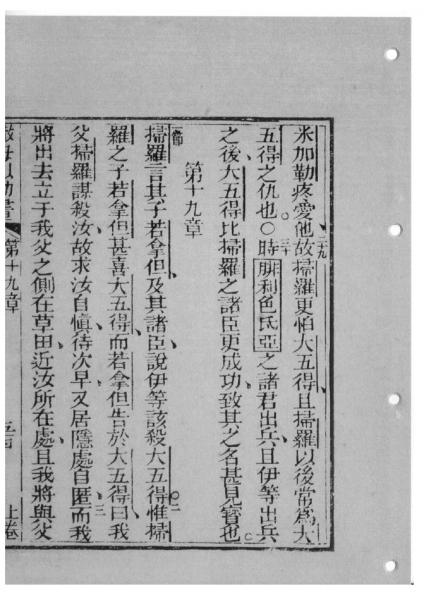 米加勒疼愛他二十九故掃羅更怕大五得且掃羅以後常爲大
五得之仇也○三十時腓利色氏亞之諸君出兵且伊等出兵
之後大五得比掃羅之諸臣更成功致其之名甚見寳也○
第十九章
一節掃羅言其子若拿但及其諸臣說伊等該殺大五得○二惟掃
羅之子若拿但甚喜大五得而若拿但告於大五得曰我
父掃羅謀殺汝故求汝自愼待次早又居隱處自匿三而我
將出去立于我父之側在草田近汝所在處且我將與父
第十九章 上卷